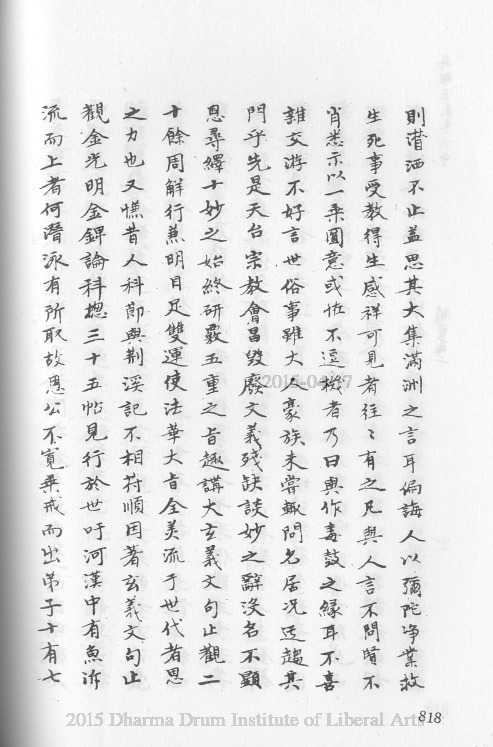 則潸洒不止盖思其大集滿洲之言耳偏誨人以彌陀净業救
生死事受教得生感祥可見者往〻有之凡與人言不問賢不
肖悉示以一乗圓意或恠不逗機者乃曰與作毒鼓之縁耳不喜
雜交游不好言世俗事雖大人豪族未甞輙問名居况迃趨其
門乎先是天台宗教會昌毀廢文義殘缺談妙之辭没名不顯
恩尋繹十妙之始終研覈五重之旨趣講大玄義文句止觀二
十餘周解行兼明目足雙運使法華大旨全美流于世代者恩
之力也又慊昔人科節與荆溪記不相符順因著玄義文句止
觀金光明金錍論科揔三十五帖見行於世吁河漢中有魚泝
流而上者何潛泳有所取故恩公不寬乗戒而出弟子十有七
2015 Dharma Drum Institute of Liberal Arts
818